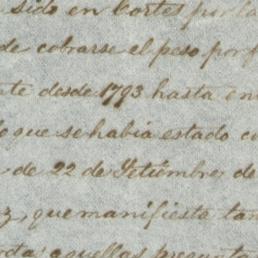 sido en Cortes por la
de cobrarse el peso por f
te desde 1793 hasta en
lo que se habia estado co
de 22 de Setiembre de
z, que manifiesta tan
aquellas pregunta